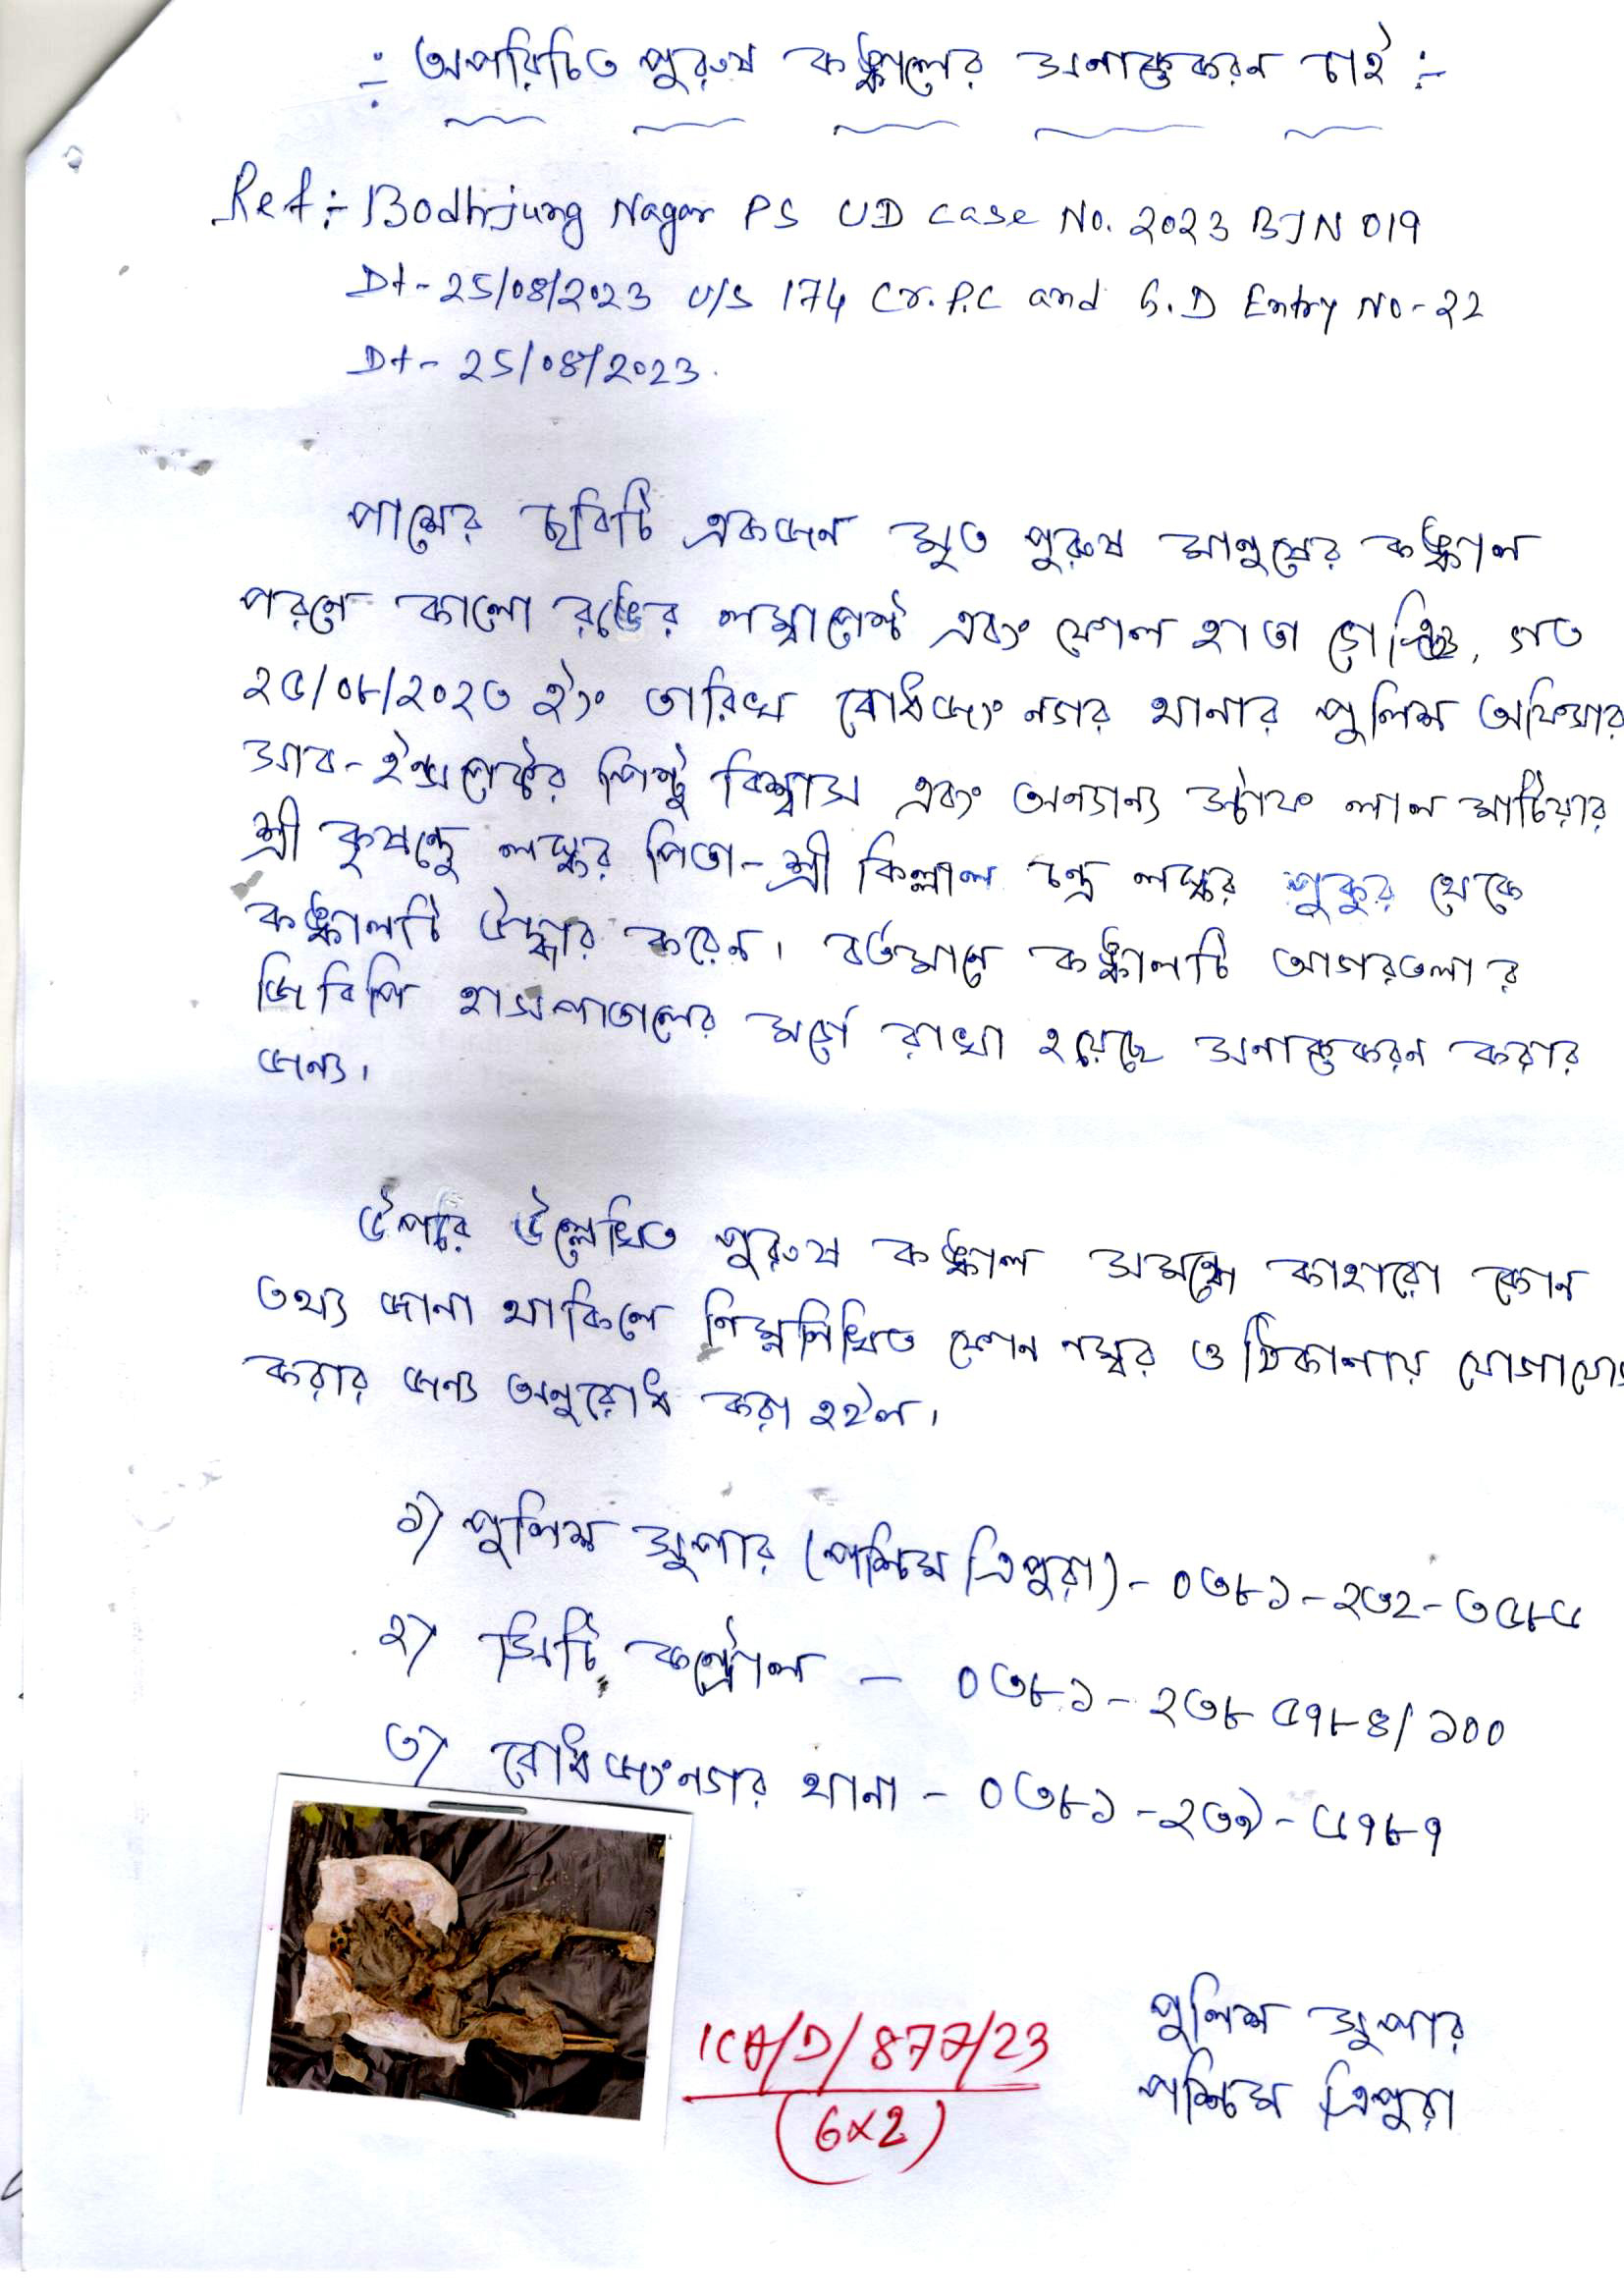 :- অপরিচিত পুরুষ কঙ্কালের সনাক্তকরন চাই :-
Ref :- Bodhjung Nagar PS UD case No. 2023 BJN 019
Dt- 25/08/2023 U/S 174 Cr.P.C and G.D Entry No-22
Dt- 25/08/2023.
পাশের ছবিটি একজন মৃত পুরুষ মানুষের কঙ্কাল
পরনে কালো রঙের লম্বাপেন্ট এবং ফোল হাতা গেঞ্জি, গত
২৫/০৮/২০২৩ ইং তারিখ বোধজংনগর থানার পুলিশ অফিসার
সাব-ইন্সপেক্টর পিন্টু বিশ্বাস এবং অন্যান্য স্টাফ লাল মাটিয়ার
শ্রী লস্কর পিতা-শ্রী চন্দ্র লস্কর পুকুর থেকে
কঙ্কালটি উদ্ধার করেন। বর্তমানে কঙ্কালটি আগরতলার
জিবিপি হাসপাতালের মর্গে রাখা হয়েছে সনাক্তকরন করার
জন্য।
উপরি উল্লেখিত পুরুষ কঙ্কাল সমন্ধে কাহারো কোন
তথ্য জানা থাকিলে নিম্নলিখিত ফোন নম্বর ও ঠিকানায় যোগাযোগ
করার জন্য অনুরোধ করা হইল।
১) পুলিশ সুপার (পশ্চিম ত্রিপুরা) - ০৩৮১-২৩২-৩৫৮৫
২) সিটি কন্ট্রোল - ০৩৮১-২৩৮ ৫৭৮৪/১০০
৩) বোধজংনগর থানা - ০৩৮১-২৩৭-৫৭৮৭
ICA/D/877/23
(6x2)
পুলিশ সুপার
পশ্চিম ত্রিপুরা